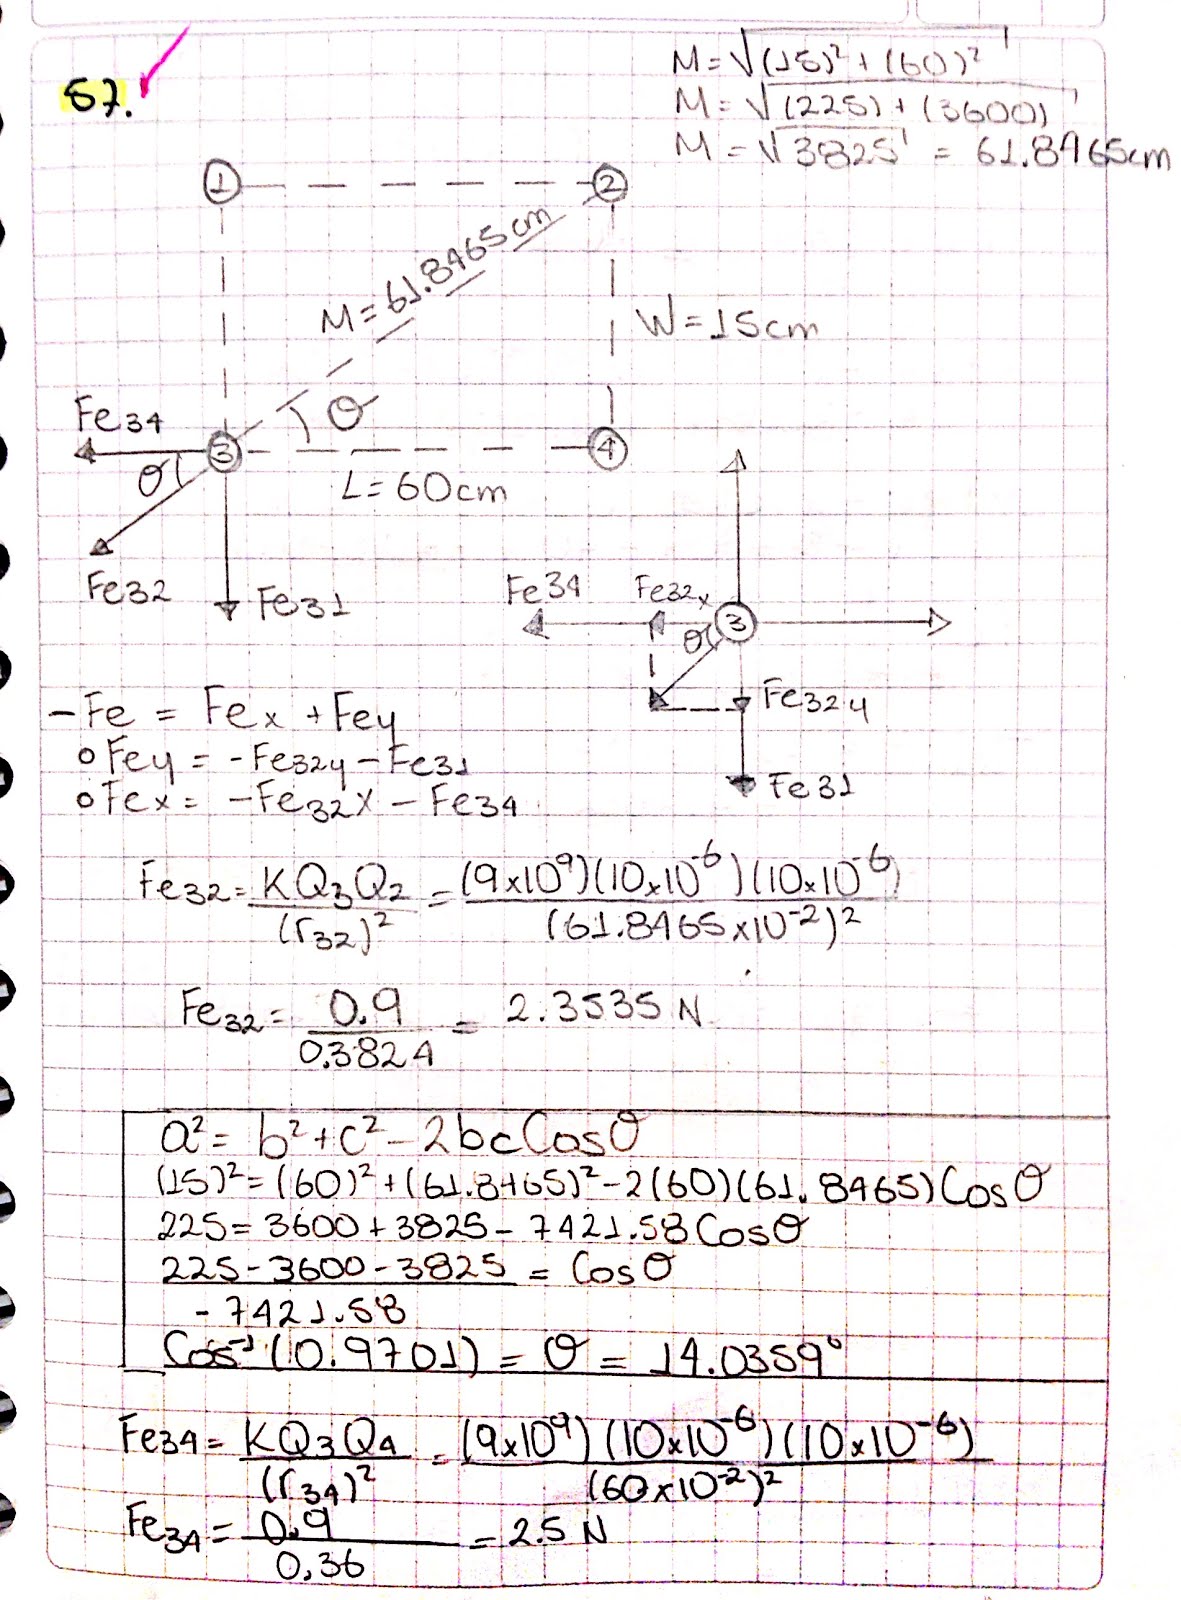 57.
M = √(15)² + (60)²
M = √(225) + (3600)
M = √3825 = 61.8465cm
1
2
M = 61.8465cm
W = 15cm
Fe34
θ
3
θ
4
L = 60cm
Fe32
Fe31
Fe34
Fe32x
3
θ
Fe32y
Fe31
- Fe = Fex + Fey
° Fey = -Fe32y - Fe31
° Fex = -Fe32x - Fe34
Fe32 = KQ3Q2/(r32)² = (9x10⁹)(10x10⁻⁶)(10x10⁻⁶)/(61.8465x10⁻²)²
Fe32 = 0.9/0.3824 = 2.3535 N
a² = b² + c² - 2bcCosθ
(15)² = (60)² + (61.8465)² - 2(60)(61.8465)Cosθ
225 = 3600 + 3825 - 7421.58Cosθ
225 - 3600 - 3825/-7421.58 = Cosθ
Cos⁻¹(0.9701) = θ = 14.0359°
Fe34 = KQ3Q4/(r34)² = (9x10⁹)(10x10⁻⁶)(10x10⁻⁶)/(60x10⁻²)²
Fe34 = 0.9/0.36 = 2.5 N